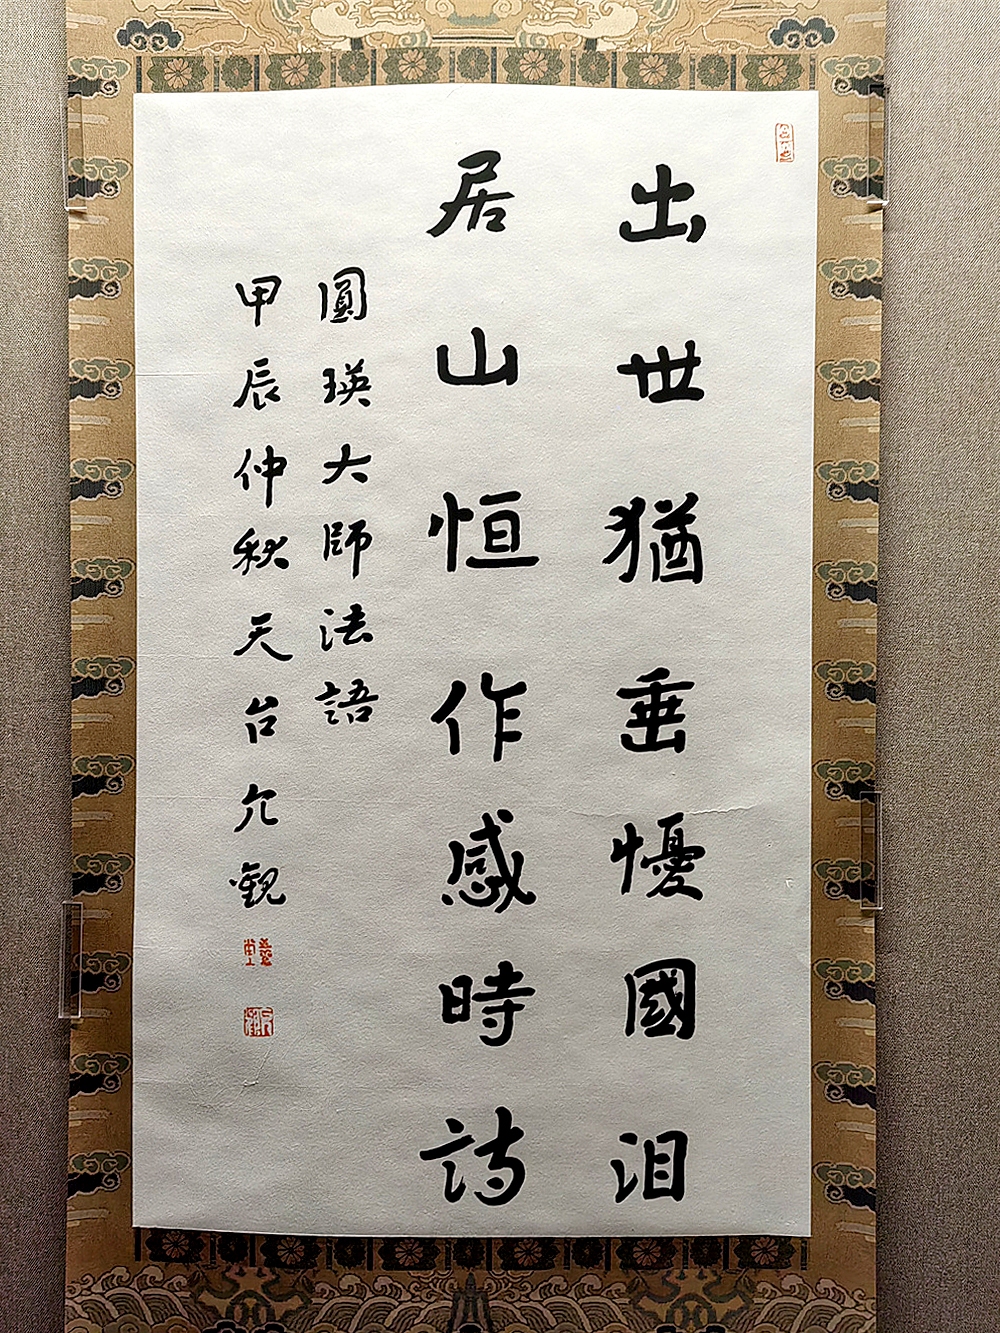 出世猶垂懮國泪
居山恒作感時詩
圓瑛大師法語
甲辰仲秋天台允觀